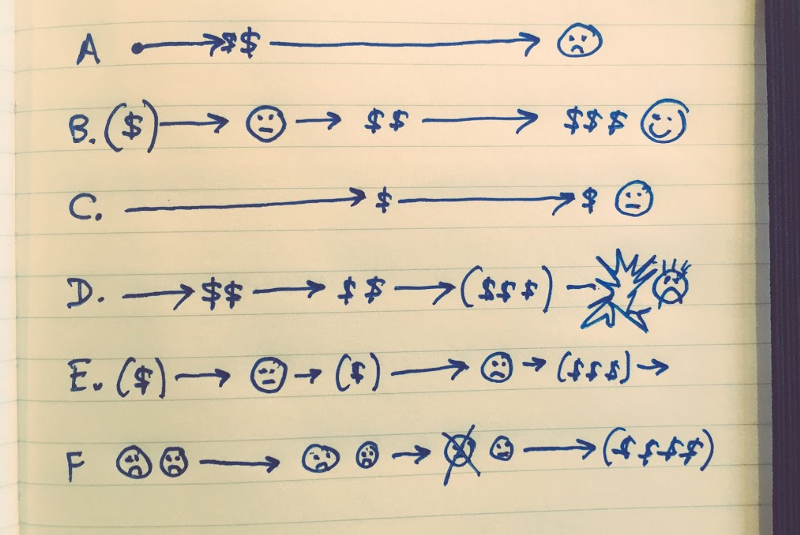 A $$
B. ($) $$ $$$
C. $ $
D. $$ $$ ($$$)
E. ($) ($) ($$$)
F ($$$$)